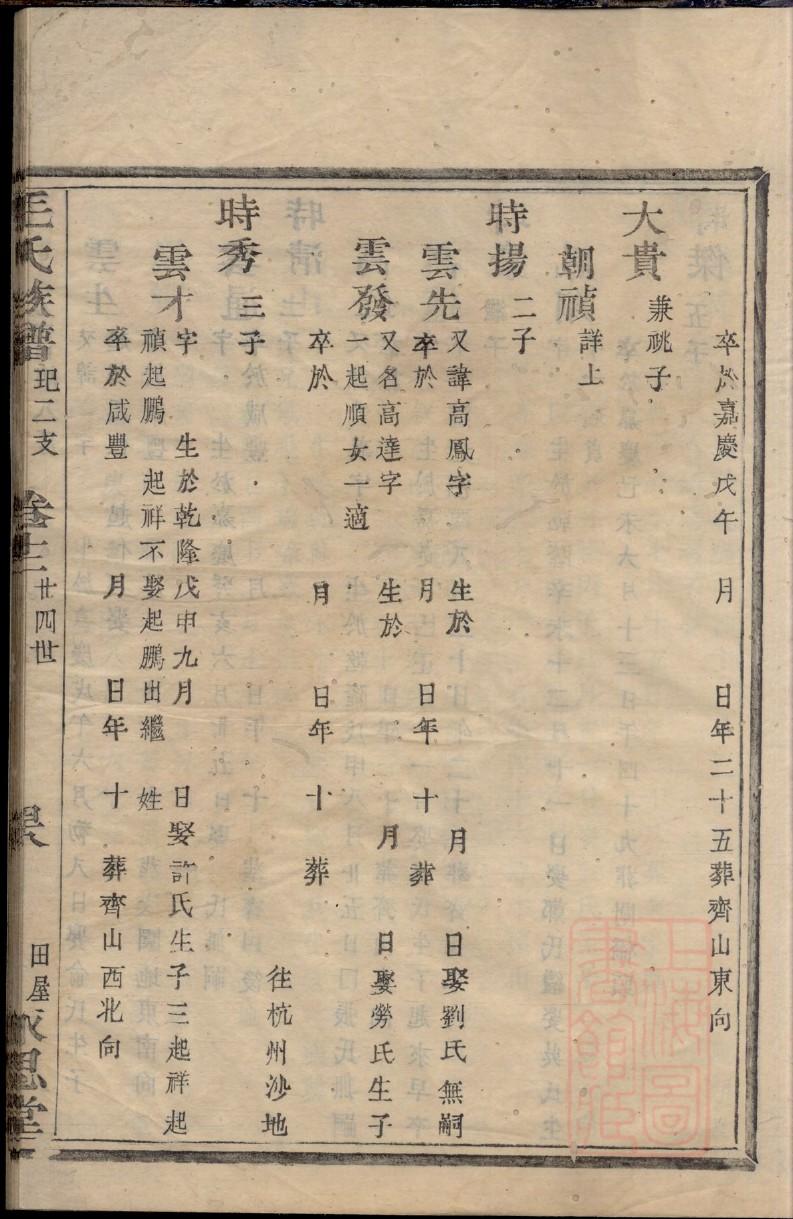 卒於嘉慶戊午 月 日年二十五葬齊山東向
大貴 兼祧子
朝禎 詳上
時揚 二子
雲先 又諱高鳳字 生於 月 日娶劉氏無嗣
卒於 月 日年 十 葬
雲發 又名高達字 生於 月 日娶勞氏生子
一起順女一適
卒於 月 日年 十 葬
往杭州沙地
時秀 三子
雲才 字 生於乾隆戊申九月 日娶許氏生子三起祥起
禎起鵬 起祥不娶起鵬出繼 姓
卒於咸豐 月 日年 十 葬齊山西北向
王氏族譜 玘二支 卷十二 廿四世 田屋 思堂